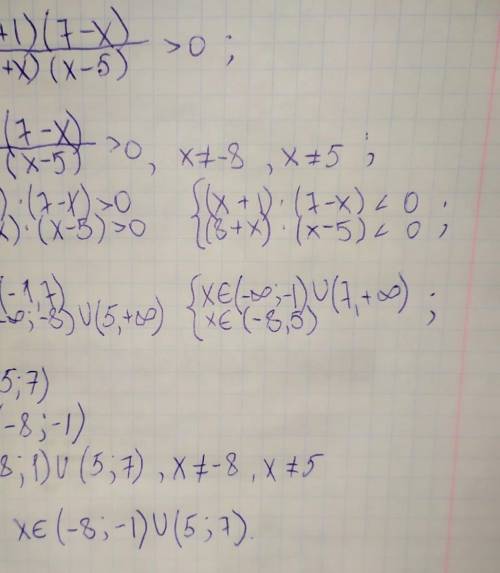 +1)(7-x)
+x)(x-5) >0 ;
(7-x)
(x-5) >0, x≠-8, x≠5 ;
)·(7-x)>0 {(x+1)·(7-x)<0 ;
x)·(x-5)>0 (8+x)·(x-5)<0 ;
(-1,7) {x∈(-∞;-1)∪(7,+∞) ;
∞;-8)∪(5,+∞) x∈(-8,5)
5;7)
-8;-1)
8;1)∪(5;7), x≠-8, x≠5
x∈(-8;-1)∪(5;7).